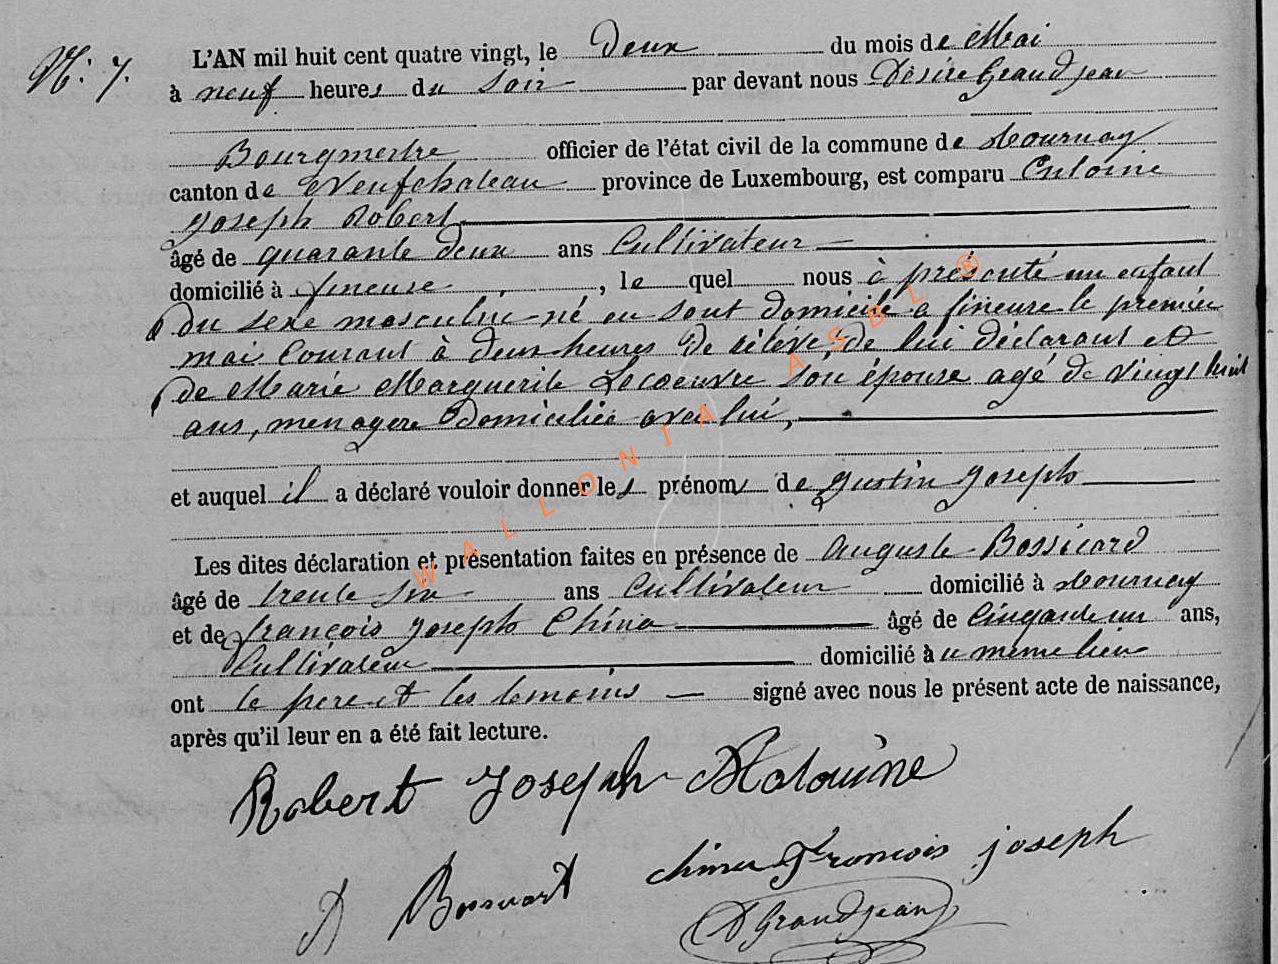 N: 7.
L'AN mil huit cent quatre vingt, le Deux du mois de Mai
à neuf heures du Soir par devant nous Désiré Grandjean
Bourgmestre officier de l'état civil de la commune de Tournay
canton de Neufchateau province de Luxembourg, est comparu Entoine
Joseph Robert
âgé de quarante deux ans Cultivateur
domicilié à fineuse, le quel nous à présenté un enfant
du sexe masculin né en sont domicile a fineuse le premier
mai Courant à deux heures de de lui déclarant et
de Marie Marguerite Lecoeuvre son épouse agé de vingt huit
ans, menagere domiciliée avec lui,
et auquel il a déclaré vouloir donner les prénoms de Justin Joseph
Les dites déclaration et présentation faites en présence de Auguste Bossicard
âgé de trente six ans Cultivateur domicilié à Tournay
et de françois Joseph China âgé de Cinquante un ans,
Cultivateur domicilié au meme lieu
ont le pere et les temoins signé avec nous le présent acte de naissance,
après qu'il leur en a été fait lecture.
Robert Joseph
A Bossicart
François joseph
D Grandjean
WALLONIA ASBL ®